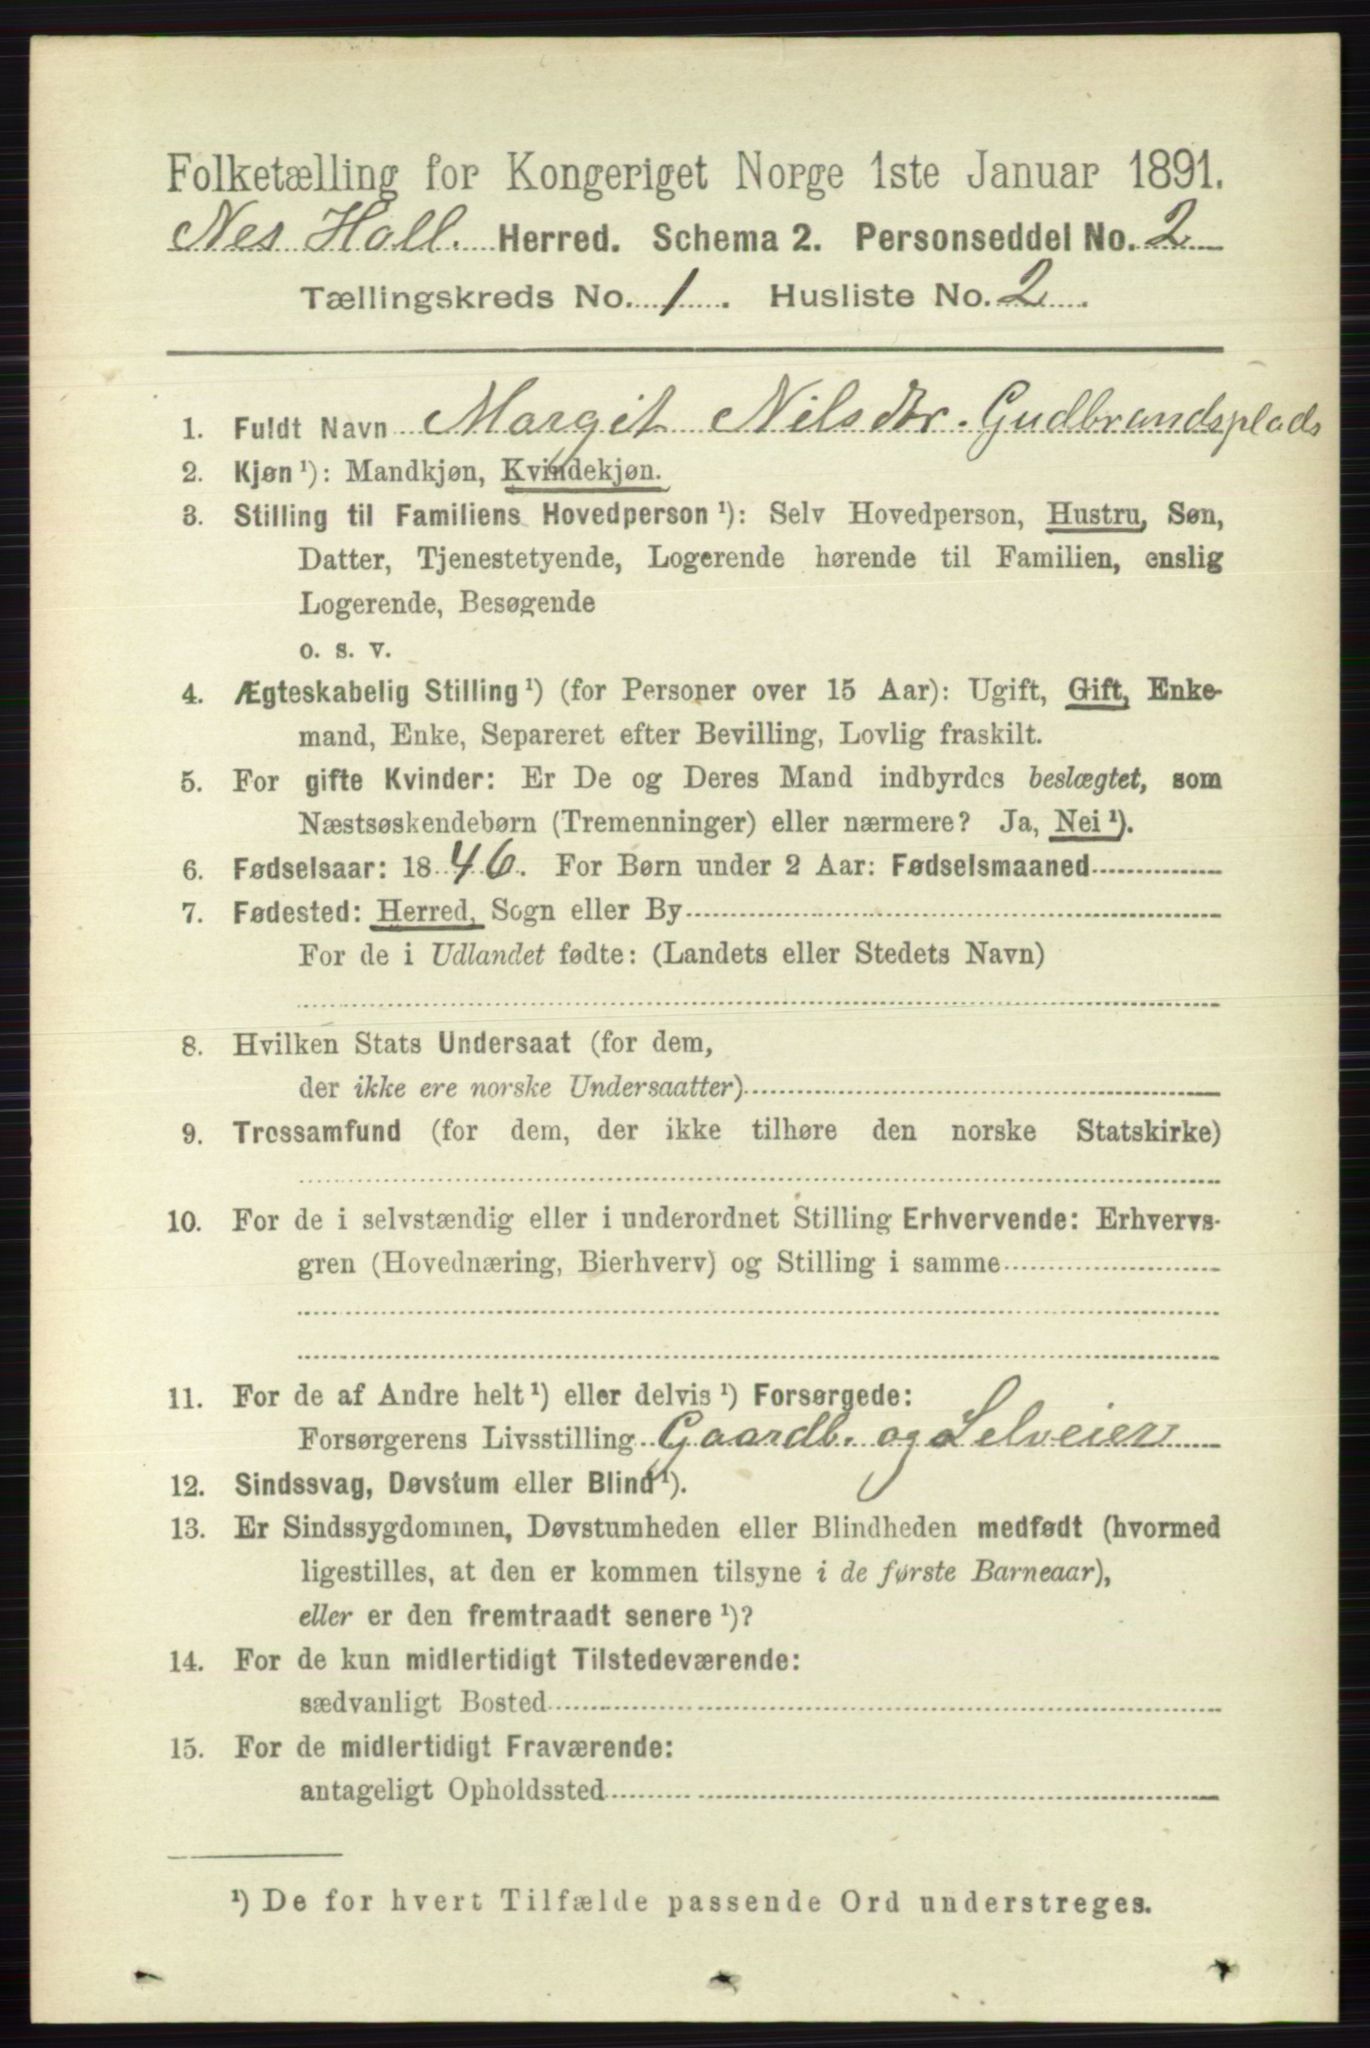 Folketælling for Kongeriget Norge 1ste Januar 1891.
Nes Hall. Herred. Schema 2. Personseddel No. 2
Tællingskreds No. 1. Husliste No. 2.
1. Fuldt Navn Margit Nilsdtr. Gudbrandsplads
2. Kjøn ¹): Mandkjøn, Kvindekjøn.
3. Stilling til Familiens Hovedperson ¹): Selv Hovedperson, Hustru, Søn,
Datter, Tjenestetyende, Logerende hørende til Familien, enslig
Logerende, Besøgende
o. s. v.
4. Ægteskabelig Stilling ¹) (for Personer over 15 Aar): Ugift, Gift, Enke-
mand, Enke, Separeret efter Bevilling, Lovlig fraskilt.
5. For gifte Kvinder: Er De og Deres Mand indbyrdes beslægtet, som
Næstsøskendebørn (Tremenninger) eller nærmere? Ja, Nei ¹).
6. Fødselsaar: 1846. For Børn under 2 Aar: Fødselsmaaned
7. Fødested: Herred, Sogn eller By
For de i Udlandet fødte: (Landets eller Stedets Navn)
8. Hvilken Stats Undersaat (for dem,
der ikke ere norske Undersaatter)
9. Trossamfund (for dem, der ikke tilhøre den norske Statskirke)
10. For de i selvstændig eller i underordnet Stilling Erhvervende: Erhvervs-
gren (Hovednæring, Bierhverv) og Stilling i samme
11. For de af Andre helt ¹) eller delvis ¹) Forsørgede:
Forsørgerens Livsstilling Gaardb. og Selveier
12. Sindssvag, Døvstum eller Blind ¹).
13. Er Sindssygdommen, Døvstumheden eller Blindheden medfødt (hvormed
ligestilles, at den er kommen tilsyne i de første Barneaar),
eller er den fremtraadt senere ¹)?
14. For de kun midlertidigt Tilstedeværende:
sædvanligt Bosted
15. For de midlertidigt Fraværende:
antageligt Opholdssted
¹) De for hvert Tilfælde passende Ord understreges.